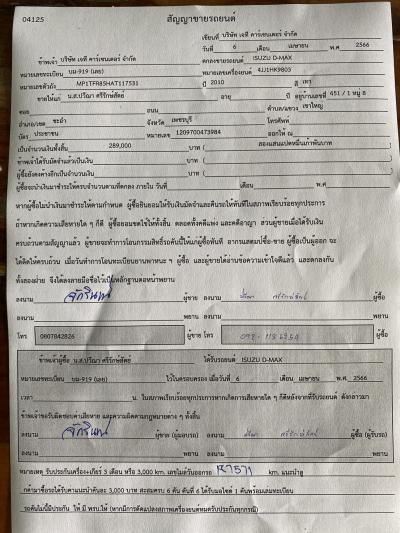 04125
สัญญาขายรถยนต์
เขียนที่ บริษัท เจที คาร์เซนเตอร์ จำกัด
วันที่ 6 เดือน เมษายน พ.ศ 2566
ข้าพเจ้า บริษัท เจที คาร์เซนเตอร์ จำกัด ตกลงขายรถยนต์ ISUZU D-MAX
หมายเลขทะเบียน บม-919 (เลย) หมายเลขเครื่องยนต์ 4JJ1HK9803
หมายเลขตัวถัง MP1TFR85HAT117531 ปี 2010 สี เทา
ขายให้แก่ น.ส.ปวีณา ศรีรักษ์สัตย์ อายุ ปี อยู่บ้านเลขที่ 451 / 1 หมู่ 8
ซอย ถนน ตำบล/แขวง เขาใหญ่
อำเภอ/เขต ชะอำ จังหวัด เพชรบุรี โทรศัพท์
บัตร ประชาชน หมายเลข 1209700473984 ออกให้ ณ
เป็นจำนวนเงินทั้งสิ้น 289,000 บาท ( สองแสนแปดหมื่นเก้าพันบาท
ข้าพเจ้าได้รับมัดจำแล้วเป็นเงิน บาท (
ผู้ซื้อยังคงค้างอีกเป็นจำนวนเงิน บาท (
ผู้ซื้อจะนำเงินมาชำระให้ครบจำนวนตามที่ตกลง ภายใน วันที่ เดือน พ.ศ.
หากผู้ซื้อไม่นำเงินมาชำระให้ตามกำหนด ผู้ซื้อยินยอมให้ริบเงินมัดจำและคืนรถให้ทันทีในสภาพเรียบร้อยทุกประการ
ถ้าหากเกิดความเสียหายใด ๆ ก็ดี ผู้ซื้อยอมชดใช้ให้ทั้งสิ้น ตลอดทั้งคดีแพ่ง และคดีอาญา ส่วนผู้ขายเมื่อได้รับเงิน
ครบถ้วนตามสัญญาแล้ว ผู้ขายจะทำการโอนกรรมสิทธิ์รถคันนี้ให้แก่ผู้ซื้อทันที
ทั้งสองฝ่าย จึงได้ลงลายมือชื่อไว้เป็นหลักฐานต่อหน้าพยาน
ลงนาม ผู้ขาย ลงนาม ผู้ซื้อ
ลงนาม พยาน ลงนาม พยาน
โทร 0807842826 ผู้ขาย โทร ผู้ซื้อ
ข้าพเจ้าผู้ซื้อ น.ส.ปวีณา ศรีรักษ์สัตย์ ได้รับรถยนต์ ISUZU D-MAX
หมายเลขทะเบียน บม-919 (เลย) ไว้ในครอบครอง เมื่อวันที่ 6 เดือน เมษายน พ.ศ 2566
เวลา น. ในสภาพเรียบร้อยทุกประการหากเกิดการเสียหายใด ๆ ก็ดีหลังจากที่รับรถยนต์ ดังกล่าวมา
ข้าพเจ้าขอรับผิดชอบค่าเสียหาย และความผิดตามกฎหมายต่าง ๆ ทั้งสิ้น
ลงนาม ผู้ขาย (ผู้มอบรถ) ลงนาม ผู้ซื้อ (ผู้รับรถ)
ลงนาม พยาน ลงนาม พยาน
หมายเหตุ รับประกันเครื่อง+เกียร์ 3 เดือน หรือ 3,000 km. เลขไมล์วันออกรถ km. แนะนำลู
กค้ามาซื้อรถได้รับค่าแนะนำคันละ 3,000 บาท สะสมครบ 6 คัน คันที่ 6 ได้รับมอไซต์ 1 คันพร้อมเล่มทะเบียน
รถคันนี้มีประกัน ให้ มี พรบ.ให้ (หากมีการดัดแปลงสภาพเครื่องยนต์หมดรับประกันทุกกรณี)